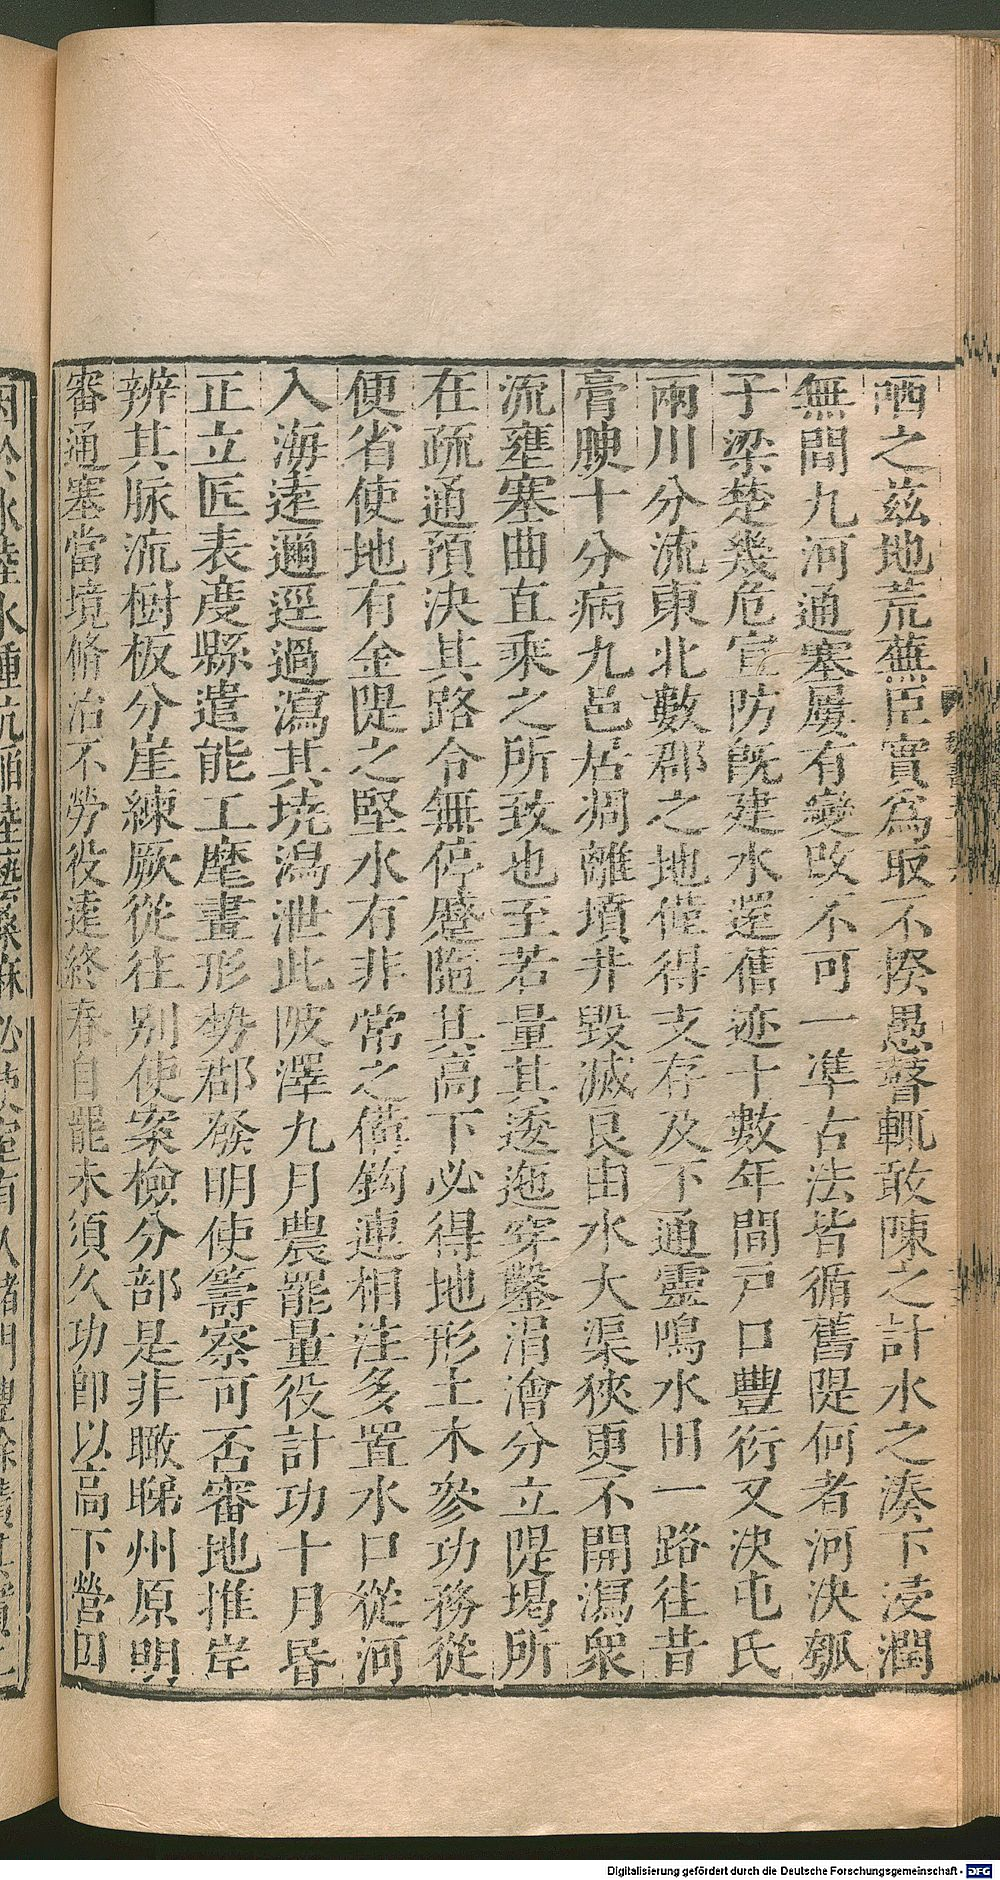 晒之茲地荒蕪臣實爲取不揆愚瞽輒敢陳之計水之湊下浸潤
無間九河通塞屢有變改不可一準古法皆循舊隄何者河決瓠
子梁楚幾危宣防既建水還舊迹十數年間戸口豐衍又決屯氏
兩川分流東北數郡之地僅得支存及下通靈鳴水田一路往昔
膏腴十分病九邑居凋離墳井毀滅良由水大渠狹更不開瀉衆
流壅塞曲直乘之所致也至若量其逶迤穿鑿涓澮分立隄堨所
在疏通預決其路令無停蹙隨其高下必得地形土木參功務從
便省使地有金隄之堅水有非常之備鈎連相注多置水口從河
入海遠邇逕過瀉其墝潟泄此陂澤九月農罷量役計功十月昏
正立匠表度縣遣能工麾畫形勢郡發明使籌察可否審地推岸
辨其脉流樹板分崖練厥從往别使案檢分部是非瞰睇州原明
審通塞當境脩治不勞役遠終春自罷未須久功卽以高下營田
Digitalisierung gefördert durch die Deutsche Forschungsgemeinschaft - DFG